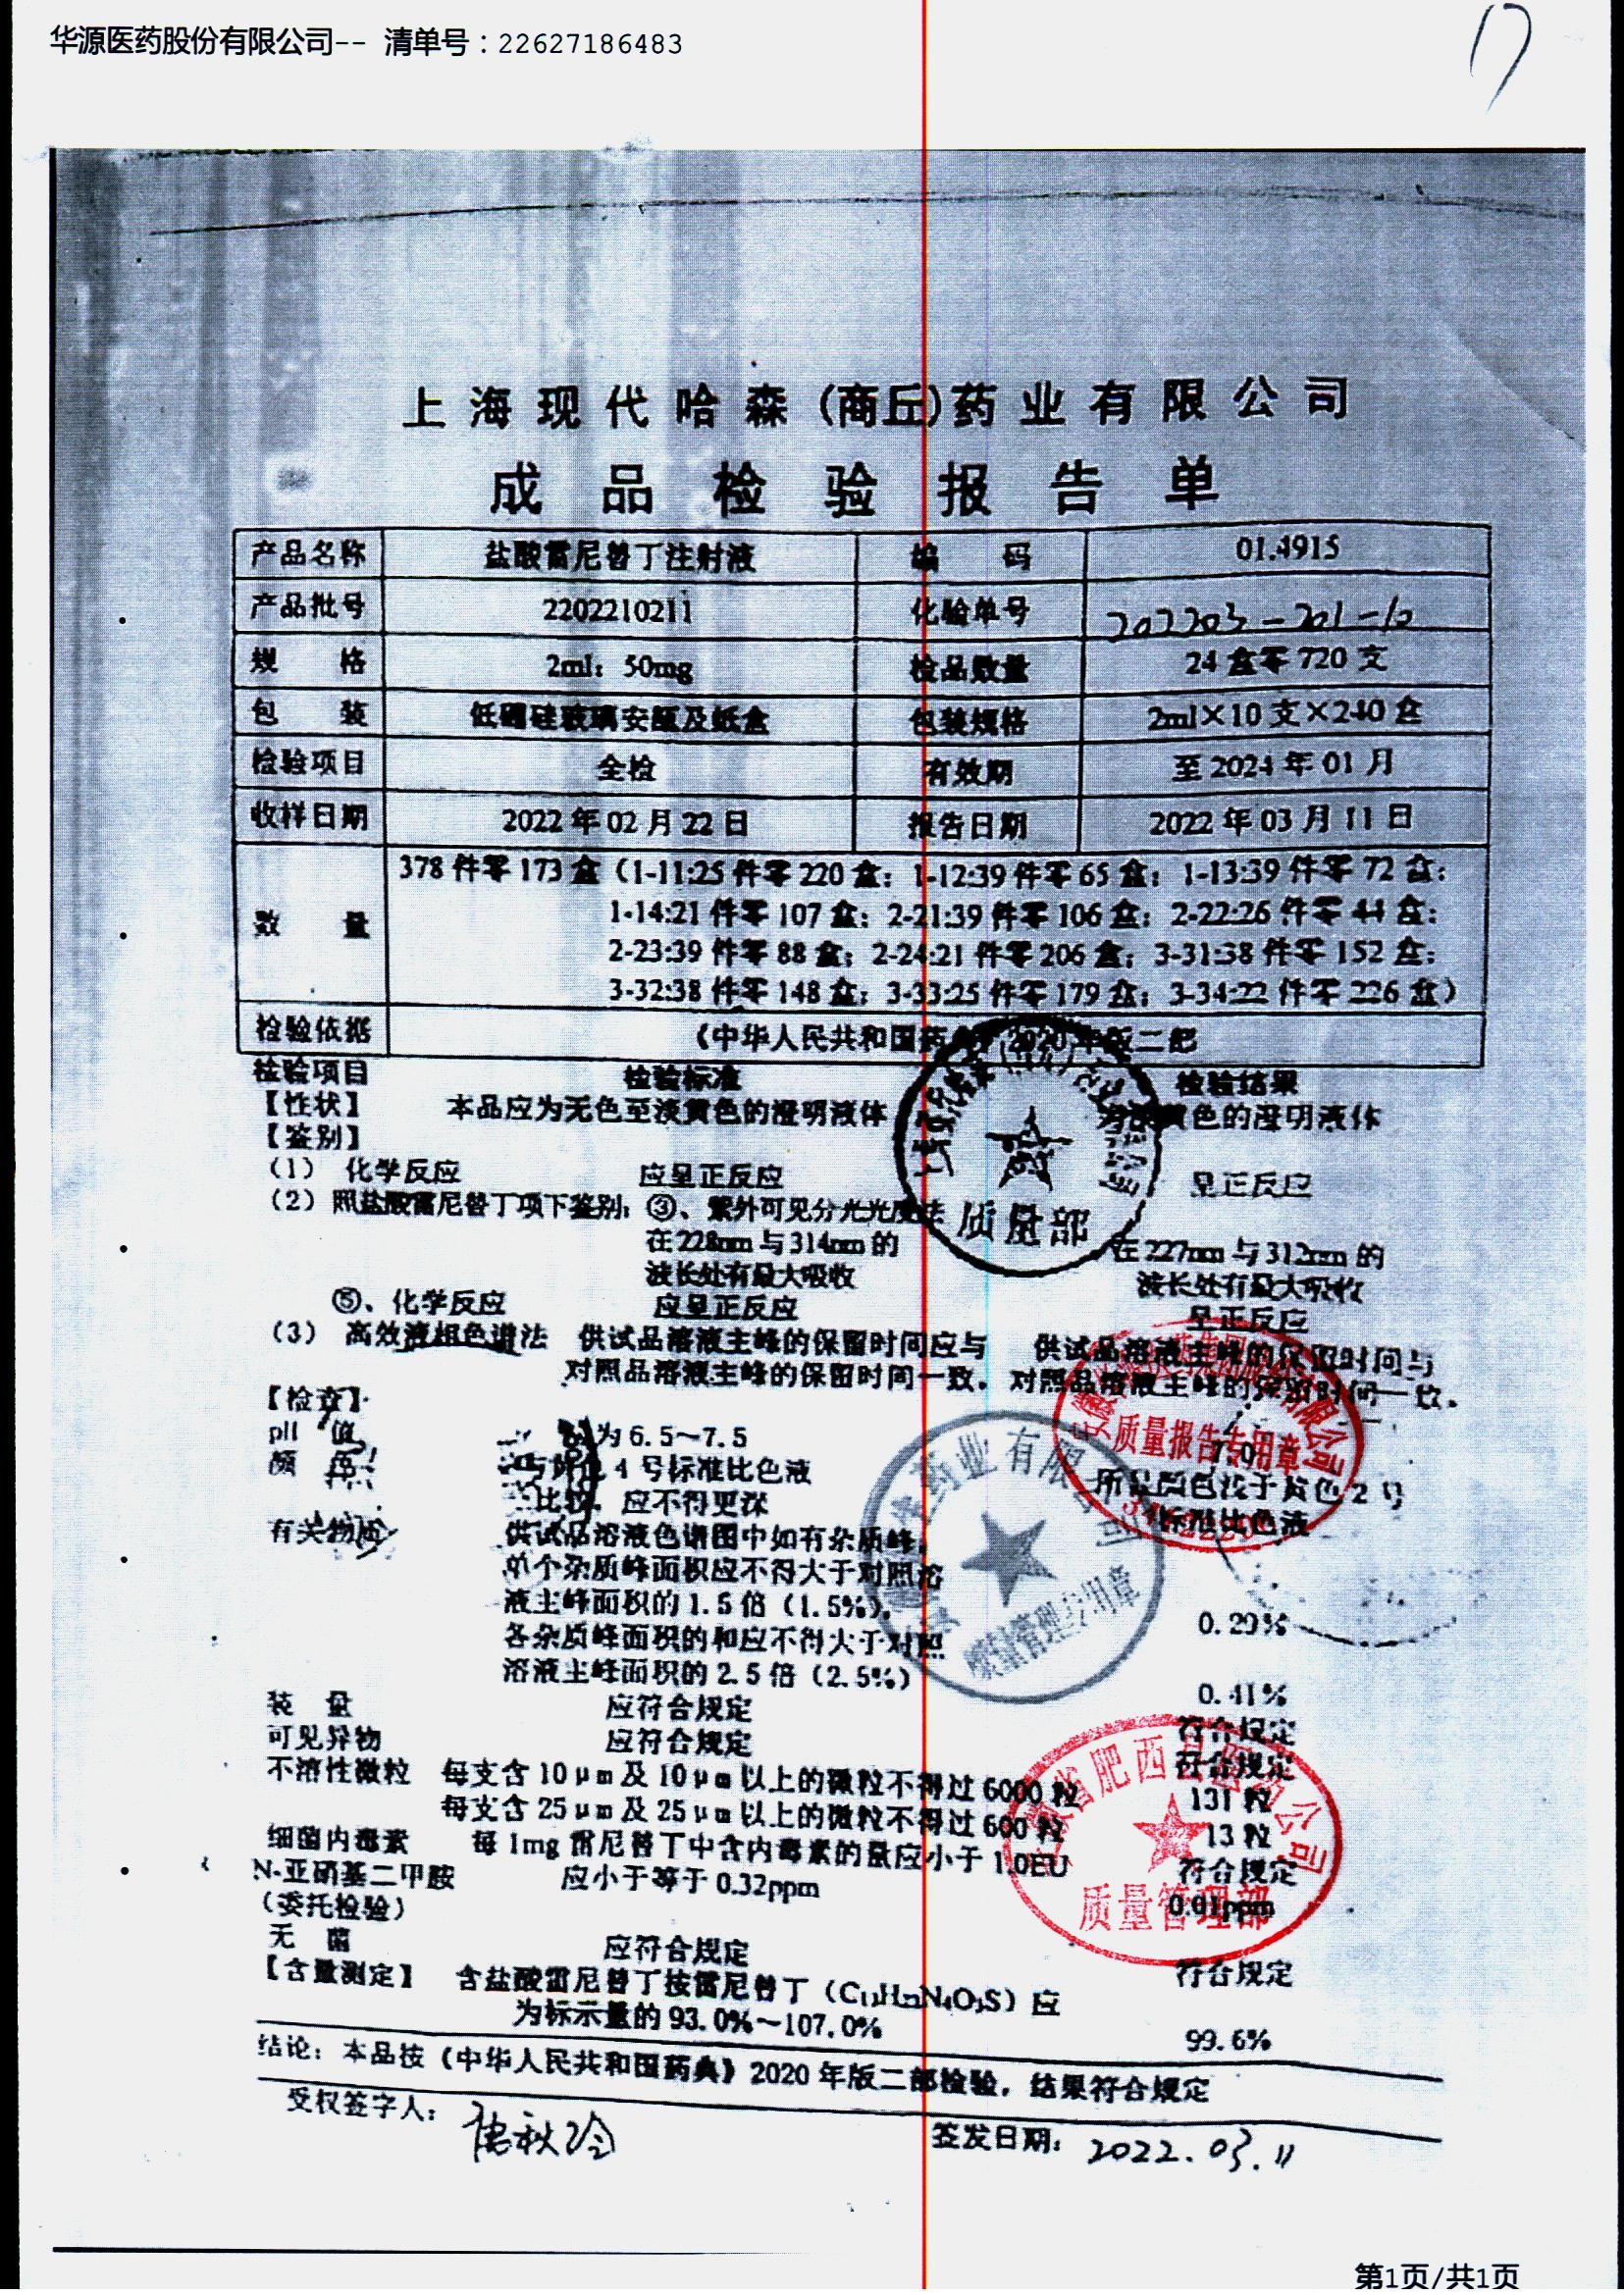 华源医药股份有限公司-- 清单号：22627186483
17
上海现代哈森(商丘)药业有限公司
成品检验报告单
产品名称 盐酸雷尼替丁注射液 编 码 01.4915
产品批号 2202210211 化验单号 202203-201-10
规 格 2ml：50mg 检品数量 24盒零720支
包 装 低硼硅玻璃安瓿及纸盒 包装规格 2ml×10支×240盒
检验项目 全检 有效期 至2024年01月
收样日期 2022年02月22日 报告日期 2022年03月11日
数 量 378件零173盒（1-11:25件零220盒；1-12:39件零65盒；1-13:39件零72盒；
1-14:21件零107盒；2-21:39件零106盒；2-22:26件零44盒；
2-23:39件零88盒；2-24:21件零206盒；3-31:38件零152盒；
3-32:38件零148盒；3-33:25件零179盒；3-34:22件零226盒）
检验依据 《中华人民共和国药 2020年版二部
检验项目 检验标准 检验结果
【性状】 本品应为无色至淡黄色的澄明液体 黄色的澄明液体
【鉴别】
（1） 化学反应 应呈正反应 呈正反应
（2）照盐酸雷尼替丁项下鉴别：③、紫外可见分光光度法
在228nm与314nm的 在227nm与312nm的
波长处有最大吸收 波长处有最大吸收
⑤、化学反应 应呈正反应 呈正反应
（3） 高效液相色谱法 供试品溶液主峰的保留时间应与 供试品溶液主峰的保留时间与
对照品溶液主峰的保留时间一致。 对照品溶液主峰的保留时间一致。
【检查】
pH 值 为6.5～7.5 7.0
颜 色 4号标准比色液 所显颜色浅于黄色2号
比较，应不得更深 标准比色液
有关物质 供试品溶液色谱图中如有杂质峰，
单个杂质峰面积应不得大于对照溶
液主峰面积的1.5倍（1.5%）， 0.29%
各杂质峰面积的和应不得大于对照
溶液主峰面积的2.5倍（2.5%） 0.41%
装 量 应符合规定 符合规定
可见异物 应符合规定 符合规定
不溶性微粒 每支含10μm及10μm以上的微粒不得过6000粒 131粒
每支含25μm及25μm以上的微粒不得过600粒 13粒
细菌内毒素 每1mg雷尼替丁中含内毒素的量应小于1.0EU 符合规定
N-亚硝基二甲胺 应小于等于0.32ppm 0.01ppm
（委托检验）
无 菌 应符合规定 符合规定
【含量测定】 含盐酸雷尼替丁按雷尼替丁（C₁₃H₂₂N₄O₃S）应
为标示量的93.0%～107.0% 99.6%
结论：本品按《中华人民共和国药典》2020年版二部检验，结果符合规定
受权签字人： 签发日期：2022.03.11
质量部
质量报告专用章
药业有限
质量管理专用章
省肥西县医药公司
质量管理部
第1页/共1页